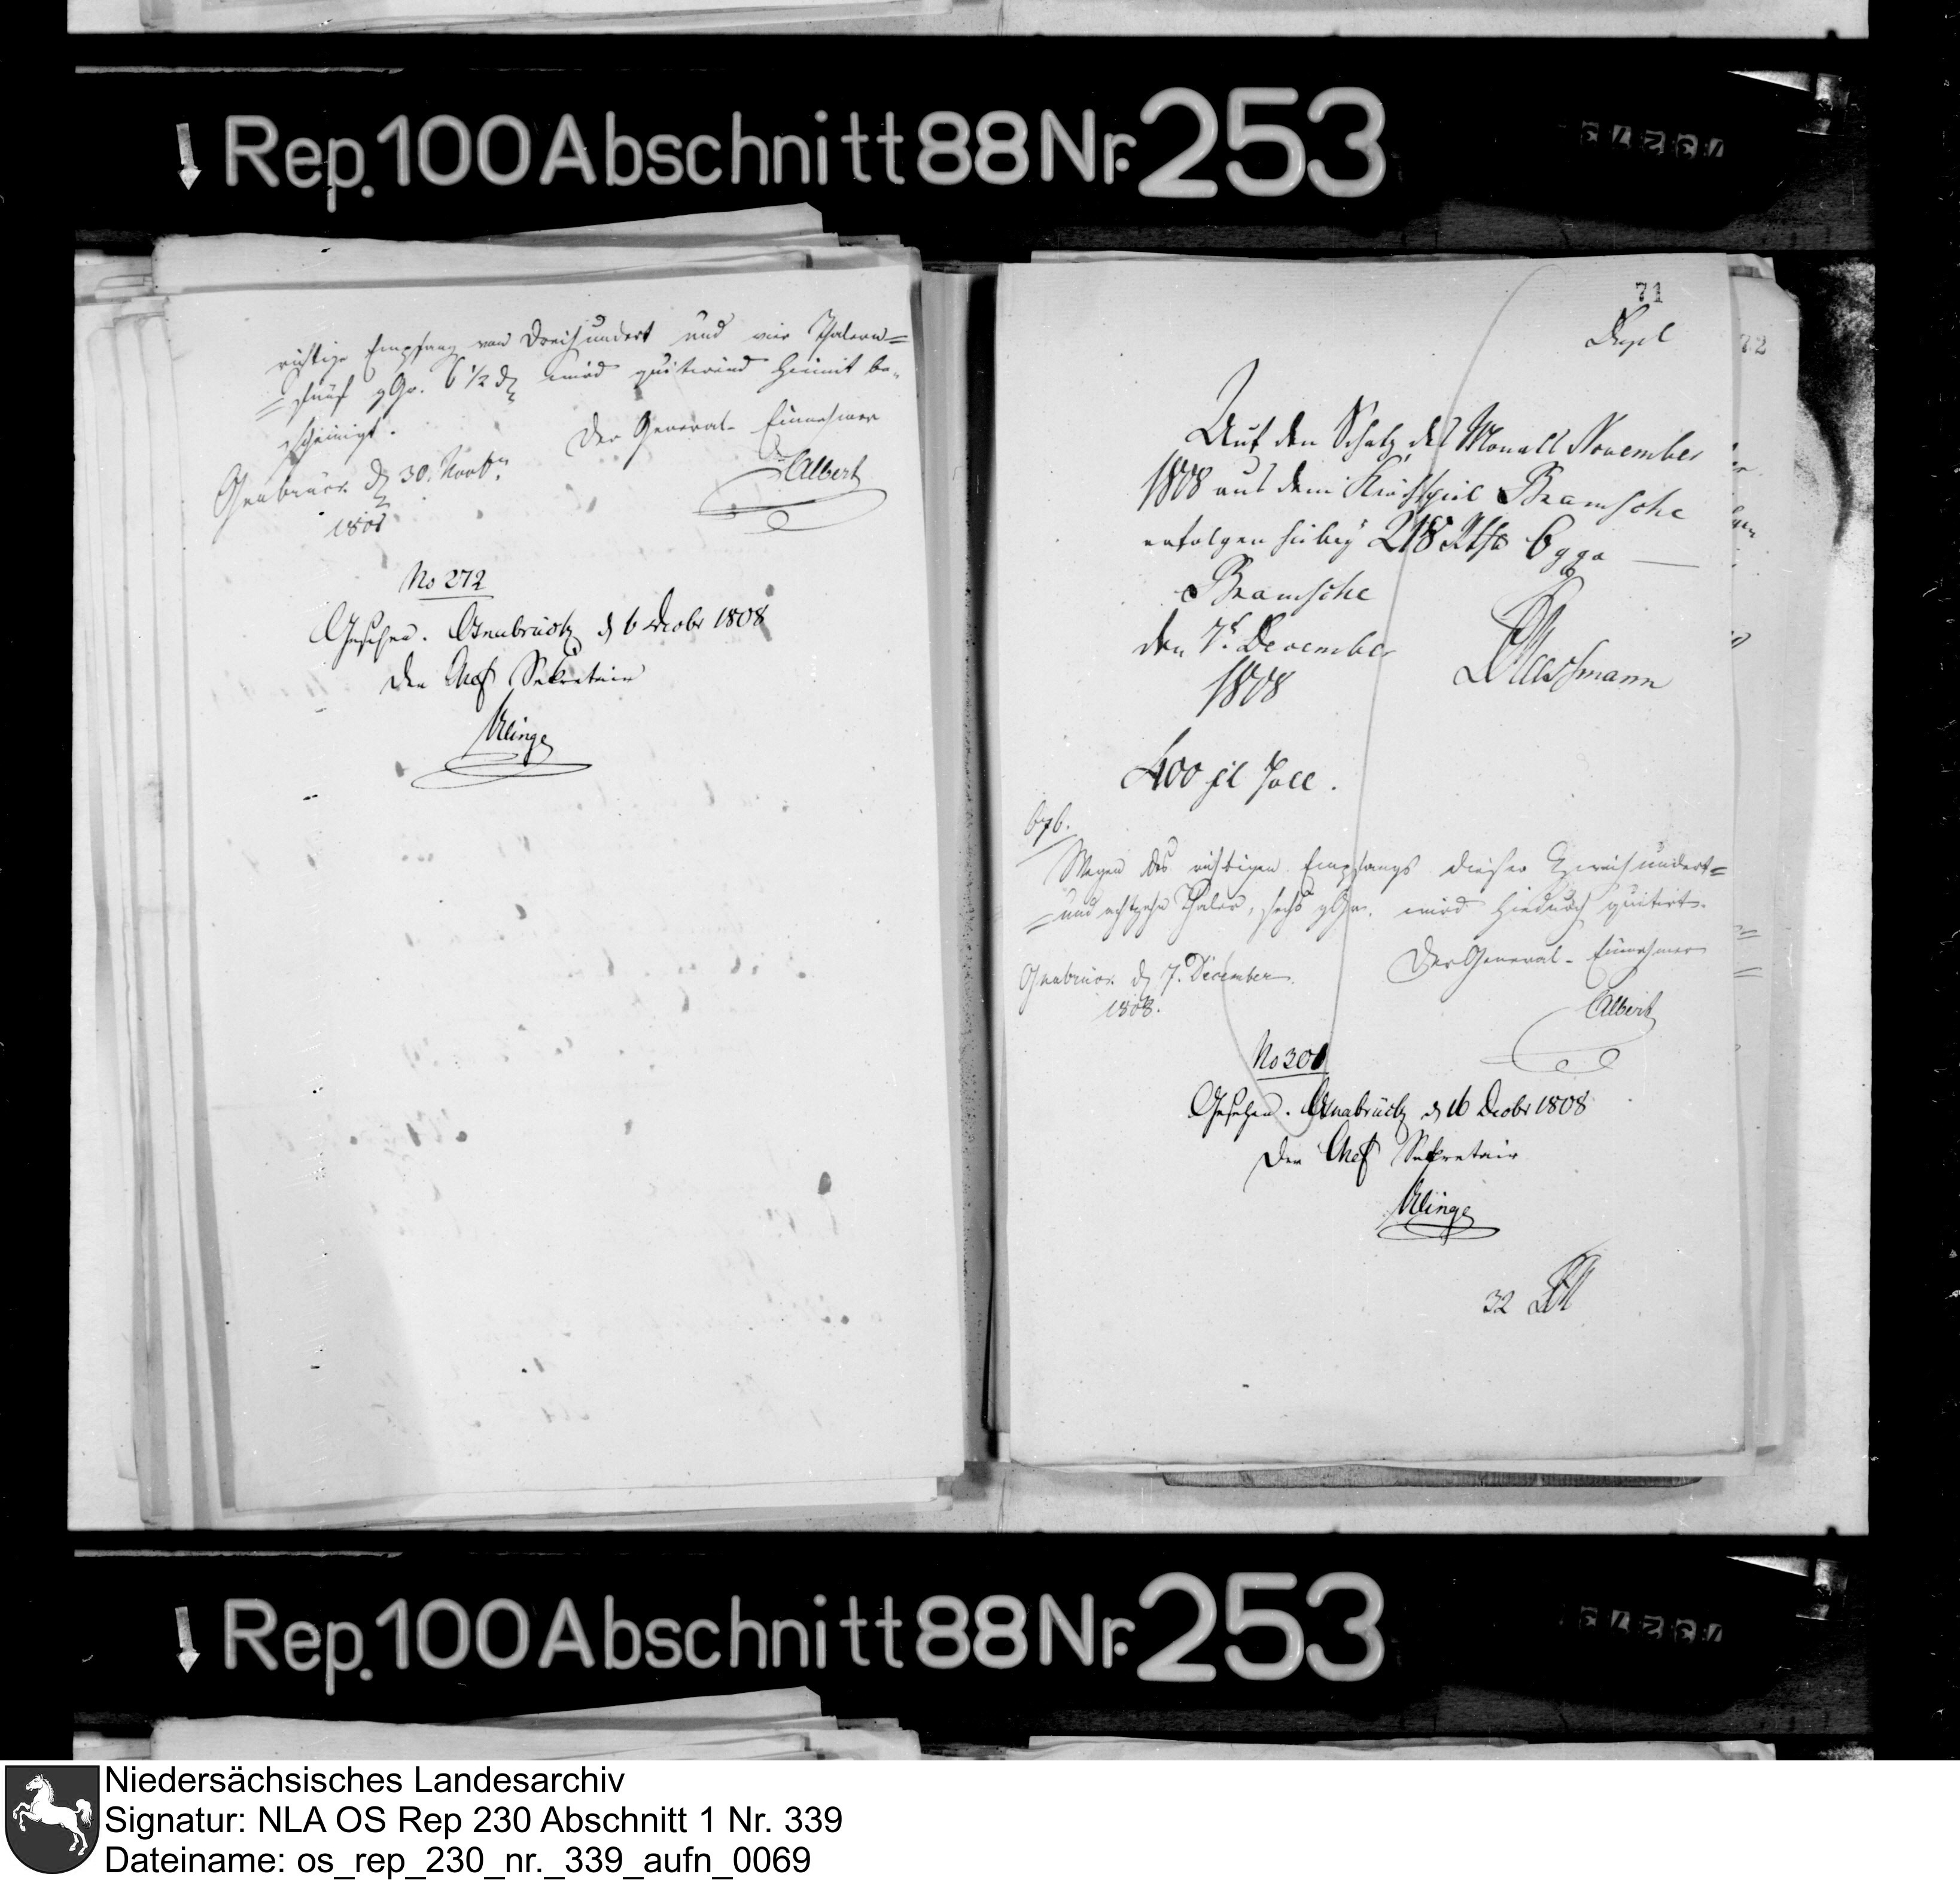 Rep. 100 Abschnitt 88 Nr. 253
richtige Empfang von Dreihundert und vier Thalern=
=fünf gGr. 6 1/2 d wird quitirend hiemit be-
scheinigt.
Der General-Einnehmer
Osnabrück d 30. Novbr
Albert
1808
No 272
Gesehen. Osnabrück d 6 Decbr 1808
Der Chef Sekretair
Klinge
71
Dupl
Auf den Schatz des Monats November
1808 aus dem Kirchspiel Bramsche
erfolgen hiebey 218 Rthr 6 ggr
Bramsche
den 7t December
1808
400 fl Zoll.
Wegen des richtigen Empfangs dieser Zweihundert=
=und achtzehn Thaler, sechs gGr. wird hiedurch quitirt.
Der General-Einnehmer
Osnabrück d 7. December
Albert
1808.
No 301
Gesehen. Osnabrück d 16 Decbr 1808
Der Chef Sekretair
Klinge
32
72
Rep. 100 Abschnitt 88 Nr. 253
Niedersächsisches Landesarchiv
Signatur: NLA OS Rep 230 Abschnitt 1 Nr. 339
Dateiname: os_rep_230_nr._339_aufn_0069